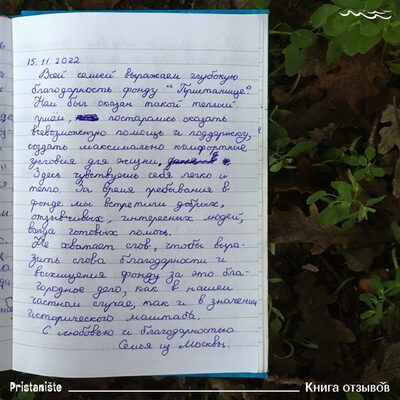 15.11.2022
Всей семьей выражаем глубокую
благодарность фонду "Пристанище"
Нам был оказан такой теплый
приём, постарались оказать
всевозможную помощь и поддержку,
создать максимально комфортные
условия для жизни,
Здесь чувствуешь себя легко и
тепло. За время пребывания в
фонде мы встретили добрых,
отзывчивых, интересных людей,
всегда готовых помочь.
Не хватает слов, чтобы выра-
зить слова благодарности и
восхищения фонду за это бла-
городное дело, как в нашем
частном случае, так и в значении
исторического масштаба.
С любовью и благодарностью
Семья из Москвы.
Pristanište
Книга отзывов